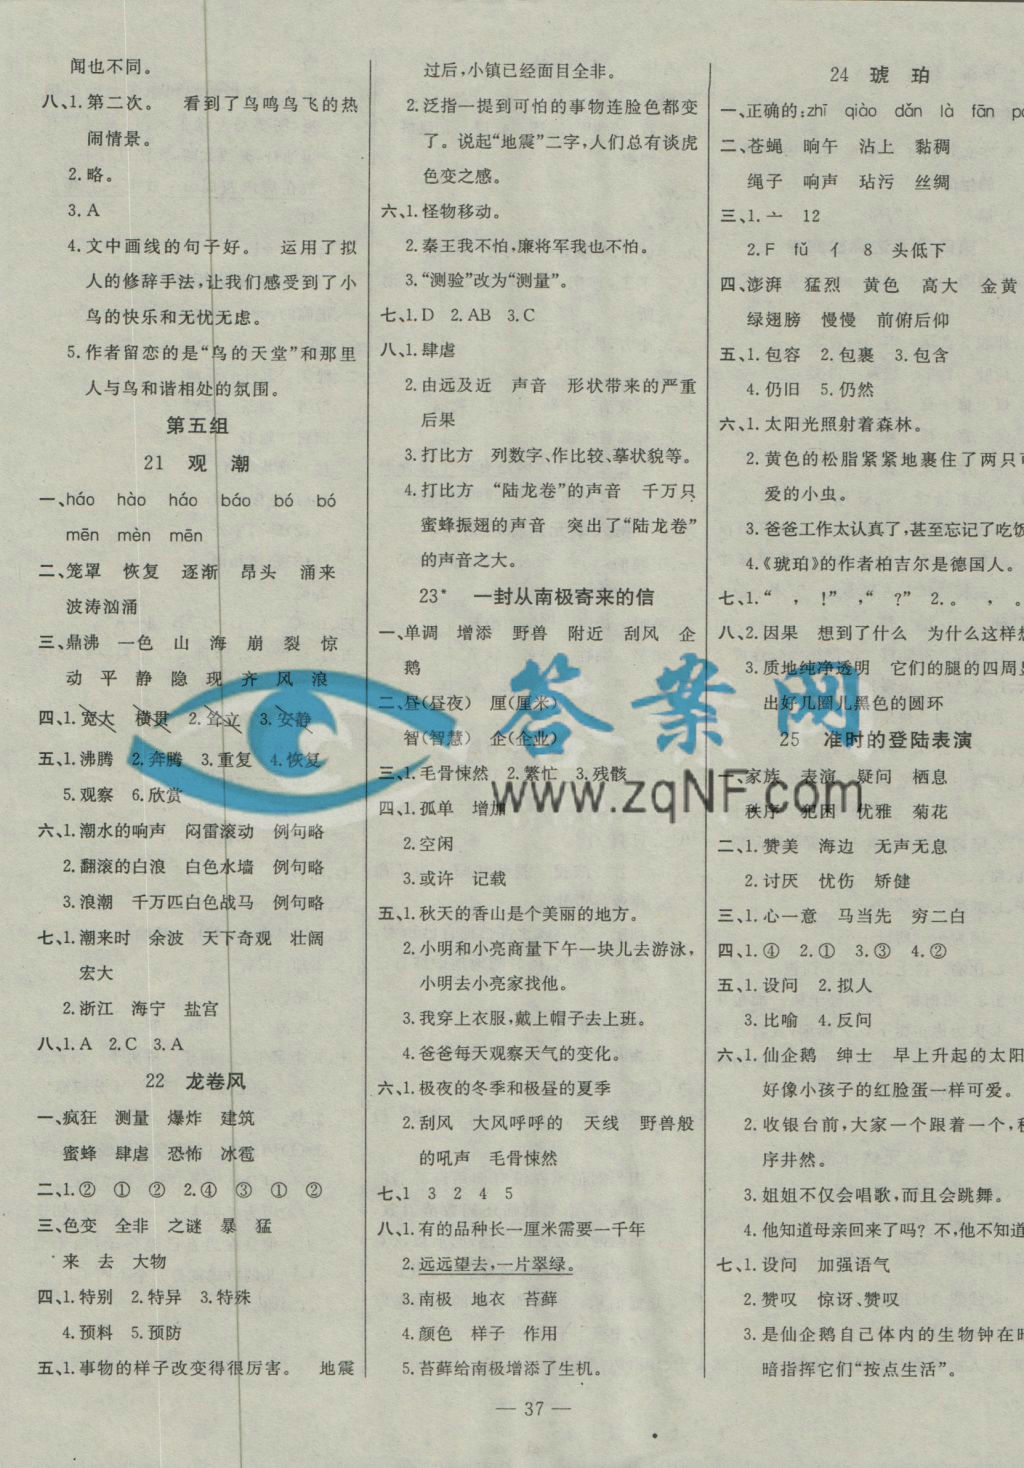 闻也不同。
八、1.第二次。 看到了鸟鸣鸟飞的热
闹情景。
2.略。
3.A
4.文中画线的句子好。 运用了拟
人的修辞手法,让我们感受到了小
鸟的快乐和无忧无虑。
5.作者留恋的是“鸟的天堂”和那里
人与鸟和谐相处的氛围。
第五组
21 观 潮
一、háo hào háo báo bó bó
mēn mèn mēn
二、笼罩 恢复 逐渐 昂头 涌来
波涛汹涌
三、鼎沸 一色 山 海 崩 裂 惊
动 平 静 隐 现 齐 风 浪
四、1.宽大 横贯 2.耸立 3.安静
五、1.沸腾 2.奔腾 3.重复 4.恢复
5.观察 6.欣赏
六、1.潮水的响声 闷雷滚动 例句略
2.翻滚的白浪 白色水墙 例句略
3.浪潮 千万匹白色战马 例句略
七、1.潮来时 余波 天下奇观 壮阔
宏大
2.浙江 海宁 盐宫
八、1.A 2.C 3.A
22 龙卷风
一、疯狂 测量 爆炸 建筑
蜜蜂 肆虐 恐怖 冰雹
二、1.② ① ② 2.④ ③ ① ②
三、色变 全非 之谜 暴 猛
来 去 大物
四、1.特别 2.特异 3.特殊
4.预料 5.预防
五、1.事物的样子改变得很厉害。 地震
过后,小镇已经面目全非。
2.泛指一提到可怕的事物连脸色都变
了。说起“地震”二字,人们总有谈虎
色变之感。
六、1.怪物移动。
2.秦王我不怕,廉将军我也不怕。
3.“测验”改为“测量”。
七、1.D 2.AB 3.C
八、1.肆虐
2.由远及近 声音 形状带来的严重
后果
3.打比方 列数字、作比较、摹状貌等。
4.打比方 “陆龙卷”的声音 千万只
蜜蜂振翅的声音 突出了“陆龙卷”
的声音之大。
23* 一封从南极寄来的信
一、单调 增添 野兽 附近 刮风 企
鹅
二、昼(昼夜) 厘(厘米)
智(智慧) 企(企业)
三、1.毛骨悚然 2.繁忙 3.残骸
四、1.孤单 增加
2.空闲
3.或许 记载
五、1.秋天的香山是个美丽的地方。
2.小明和小亮商量下午一块儿去游泳,
小明去小亮家找他。
3.我穿上衣服,戴上帽子去上班。
4.爸爸每天观察天气的变化。
六、1.极夜的冬季和极昼的夏季
2.刮风 大风呼呼的 天线 野兽般
的吼声 毛骨悚然
七、1 3 2 4 5
八、1.有的品种长一厘米需要一千年
2.远远望去,一片翠绿。
3.南极 地衣 苔藓
4.颜色 样子 作用
5.苔藓给南极增添了生机。
24 琥 珀
一、正确的:zhī qiào dǎn là fān
二、苍蝇 晌午 沾上 黏稠
绳子 响声 玷污 丝绸
三、1.亠 12
2.F fǔ 亻 8 头低下
四、澎湃 猛烈 黄色 高大 金黄
绿翅膀 慢慢 前俯后仰
五、1.包容 2.包裹 3.包含
4.仍旧 5.仍然
六、1.太阳光照射着森林。
2.黄色的松脂紧紧地裹住了两只可
爱的小虫。
3.爸爸工作太认真了,甚至忘记了吃饭
4.《琥珀》的作者柏吉尔是德国人。
七、1.“ , !”,“ ?” 2.。 , 。
八、2.因果 想到了什么 为什么这样想
3.质地纯净透明 它们的腿的四周
出好几圈儿黑色的圆环
25 准时的登陆表演
一、家族 表演 疑问 栖息
秩序 犯困 优雅 菊花
二、1.赞美 海边 无声无息
2.讨厌 忧伤 矫健
三、1.心一意 马当先 穷二白
四、1.④ 2.① 3.③ 4.②
五、1.设问 2.拟人
3.比喻 4.反问
六、1.仙企鹅 绅士 早上升起的太阳
好像小孩子的红脸蛋一样可爱。
2.收银台前,大家一个跟着一个,
序井然。
3.姐姐不仅会唱歌,而且会跳舞。
4.他知道母亲回来了吗? 不,他不知道
七、1.设问 加强语气
2.赞叹 惊讶、赞叹
3.是仙企鹅自己体内的生物钟在
暗指挥它们“按点生活”。
— 37 —
答案网
www.zqNF.com